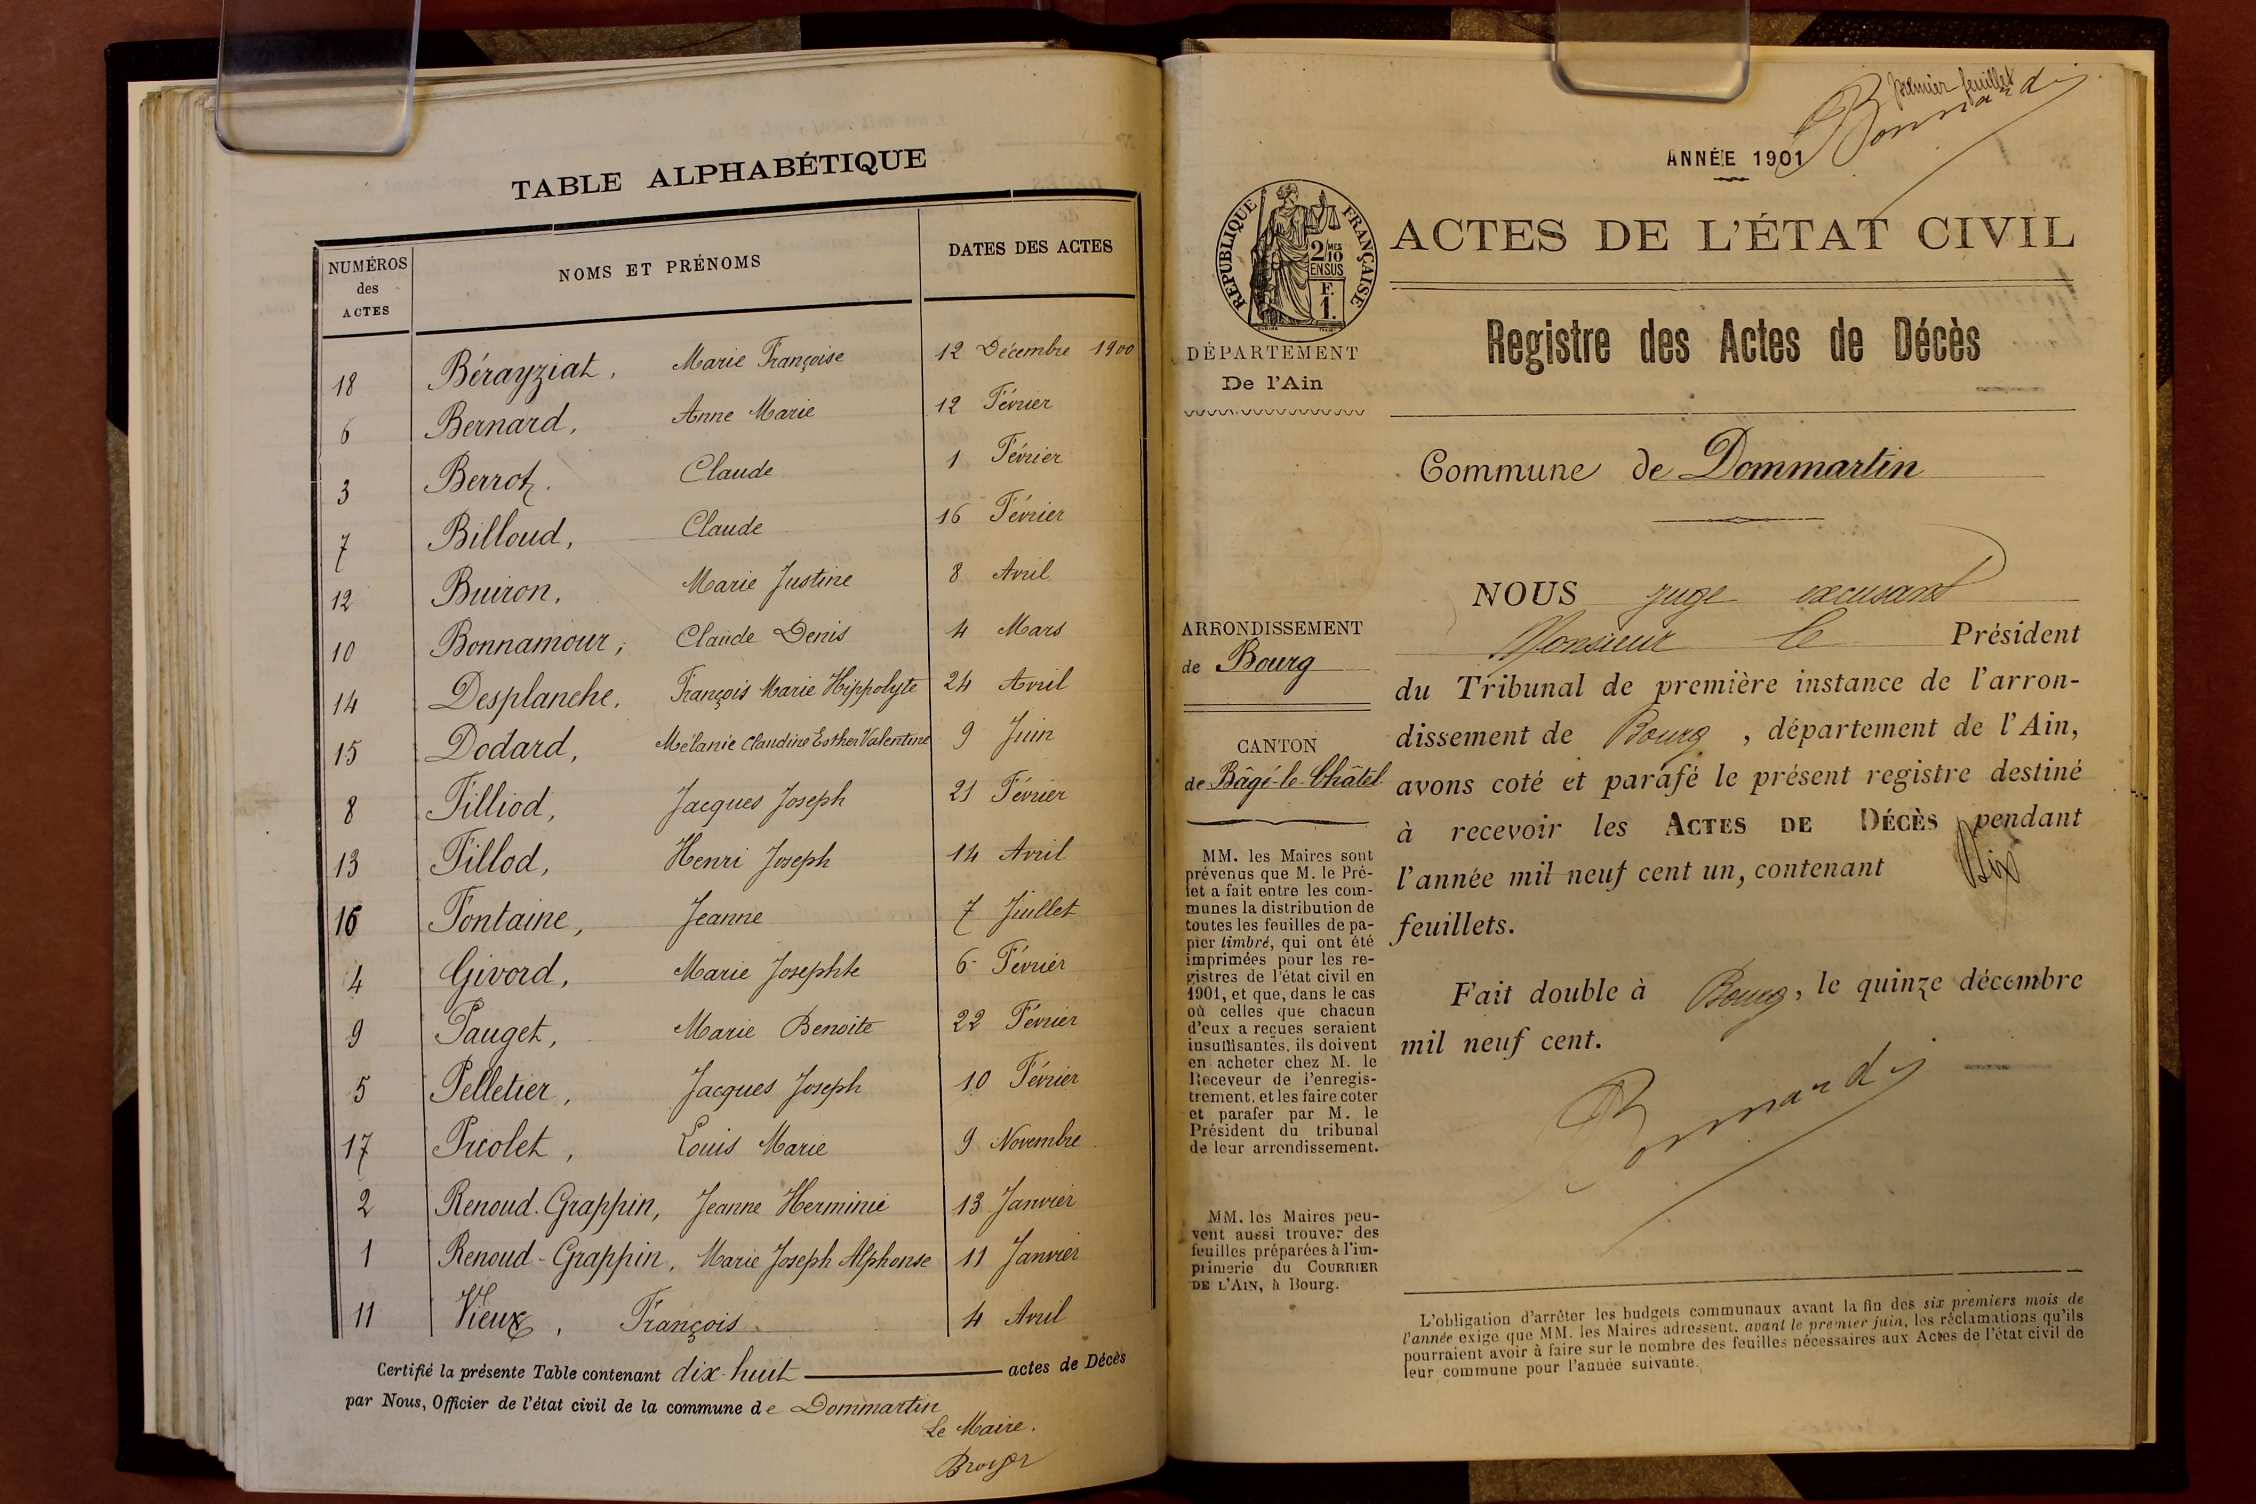 TABLE ALPHABÉTIQUE
NUMÉROS des ACTES NOMS ET PRÉNOMS DATES DES ACTES
18 Bérayziat, Marie Françoise 12 Décembre 1900
6 Bernard, Anne Marie 12 Février
3 Berrot. Claude 1 Février
7 Billoud, Claude 16 Février
12 Buiron, Marie Justine 8 Avril
10 Bonnamour, Claude Denis 4 Mars
14 Desplanche, François Marie Hippolyte 24 Avril
15 Dodard, Mélanie Claudine Esther Valentine 9 Juin
8 Filliod, Jacques Joseph 21 Février
13 Fillod, Henri Joseph 14 Avril
16 Fontaine, Jeanne 7 Juillet
4 Givord, Marie Josephte 6 Février
9 Pauget, Marie Benoite 22 Février
5 Pelletier, Jacques Joseph 10 Février
17 Picolet, Louis Marie 9 Novembre
2 Renoud-Grappin, Jeanne Herminie 13 Janvier
1 Renoud-Grappin, Marie Joseph Alphonse 11 Janvier
11 Vieux, François 4 Avril
Certifié la présente Table contenant dix-huit actes de Décès
par Nous, Officier de l'état civil de la commune de Dommartin
Le Maire.
Broyer
premier feuillet
Bonnardi
ANNÉE 1901
RÉPUBLIQUE FRANÇAISE
2/10 MES
EN SUS
F.
1.
ACTES DE L'ÉTAT CIVIL
Registre des Actes de Décès
DÉPARTEMENT
De l'Ain
Commune de Dommartin
ARRONDISSEMENT
de Bourg
CANTON
de Bâgé-le-Châtel
MM. les Maires sont
prévenus que M. le Pré-
fet a fait entre les com-
munes la distribution de
toutes les feuilles de pa-
pier timbré, qui ont été
imprimées pour les re-
gistres de l'état civil en
1901, et que, dans le cas
où celles que chacun
d'eux a reçues seraient
insuffisantes, ils doivent
en acheter chez M. le
Receveur de l'enregis-
trement, et les faire coter
et parafer par M. le
Président du tribunal
de leur arrondissement.
MM. les Maires peu-
vent aussi trouver des
feuilles préparées à l'im-
primerie du COURRIER
DE L'AIN, à Bourg.
NOUS juge excusant
Monsieur le Président
du Tribunal de première instance de l'arron-
dissement de Bourg, département de l'Ain,
avons coté et parafé le présent registre destiné
à recevoir les ACTES DE DÉCÈS pendant
l'année mil neuf cent un, contenant Dix
feuillets.
Fait double à Bourg, le quinze décembre
mil neuf cent.
Bonnardi
L'obligation d'arrêter les budgets communaux avant la fin des six premiers mois de
l'année exige que MM. les Maires adressent, avant le premier juin, les réclamations qu'ils
pourraient avoir à faire sur le nombre des feuilles nécessaires aux Actes de l'état civil de
leur commune pour l'année suivante.